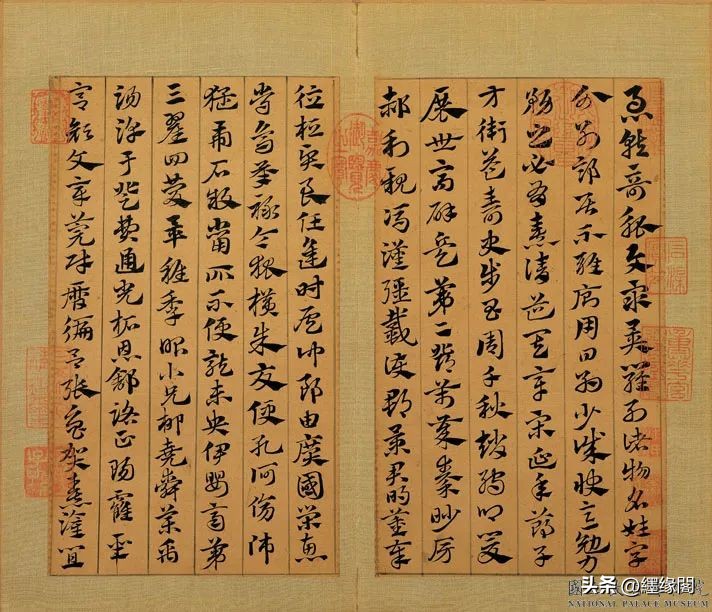 急就奇觚與眾異羅列諸物名姓字
分別部居不雜廁用日約少誠快意勉力
務之必有憙請道其章宋延年鄭子
方衛益壽史步昌周千秋趙孺卿爰
展世高辟兵第二鄧萬歲秦眇房
郝利親馮漢彊戴護郡景君明董奉
德桓賢良任逢時侯仲郎由廣國榮惠
常烏承祿令狐橫朱交便孔何傷師
猛虎石敢當所不侵龍未央伊嬰齊第
三翟回慶畢稚季昭小兄柳堯舜藥禹
湯淳于登費通光柘恩舒路正陽霍聖
宮顏文章莞財歷徧呂張魯賀憙灌宜
头条 @缘閣
NATIONAL PALACE MUSEUM